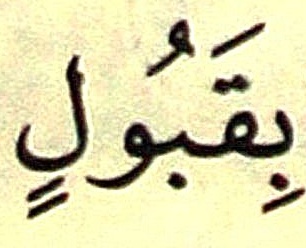 بِقَبُولٍ